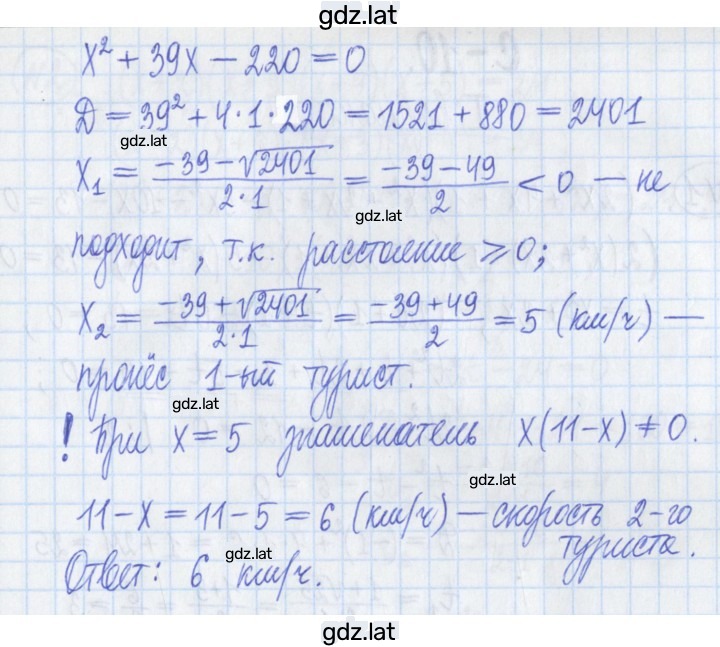 gdz.lat
x² + 39x − 220 = 0
Д = 39² + 4·1·220 = 1521 + 880 = 2401
gdz.lat
x₁ = (−39 − √2401)/(2·1) = (−39 − 49)/2 < 0 — не
gdz.lat
подходит, т.к. расстояние ⩾ 0;
x₂ = (−39 + √2401)/(2·1) = (−39 + 49)/2 = 5 (км/ч) —
пронёс 1-ый турист.
gdz.lat
! При x = 5 знаменатель x(11−x) ≠ 0.
gdz.lat
11 − x = 11 − 5 = 6 (км/ч) — скорость 2-го
туриста.
gdz.lat
Ответ: 6 км/ч.
gdz.lat